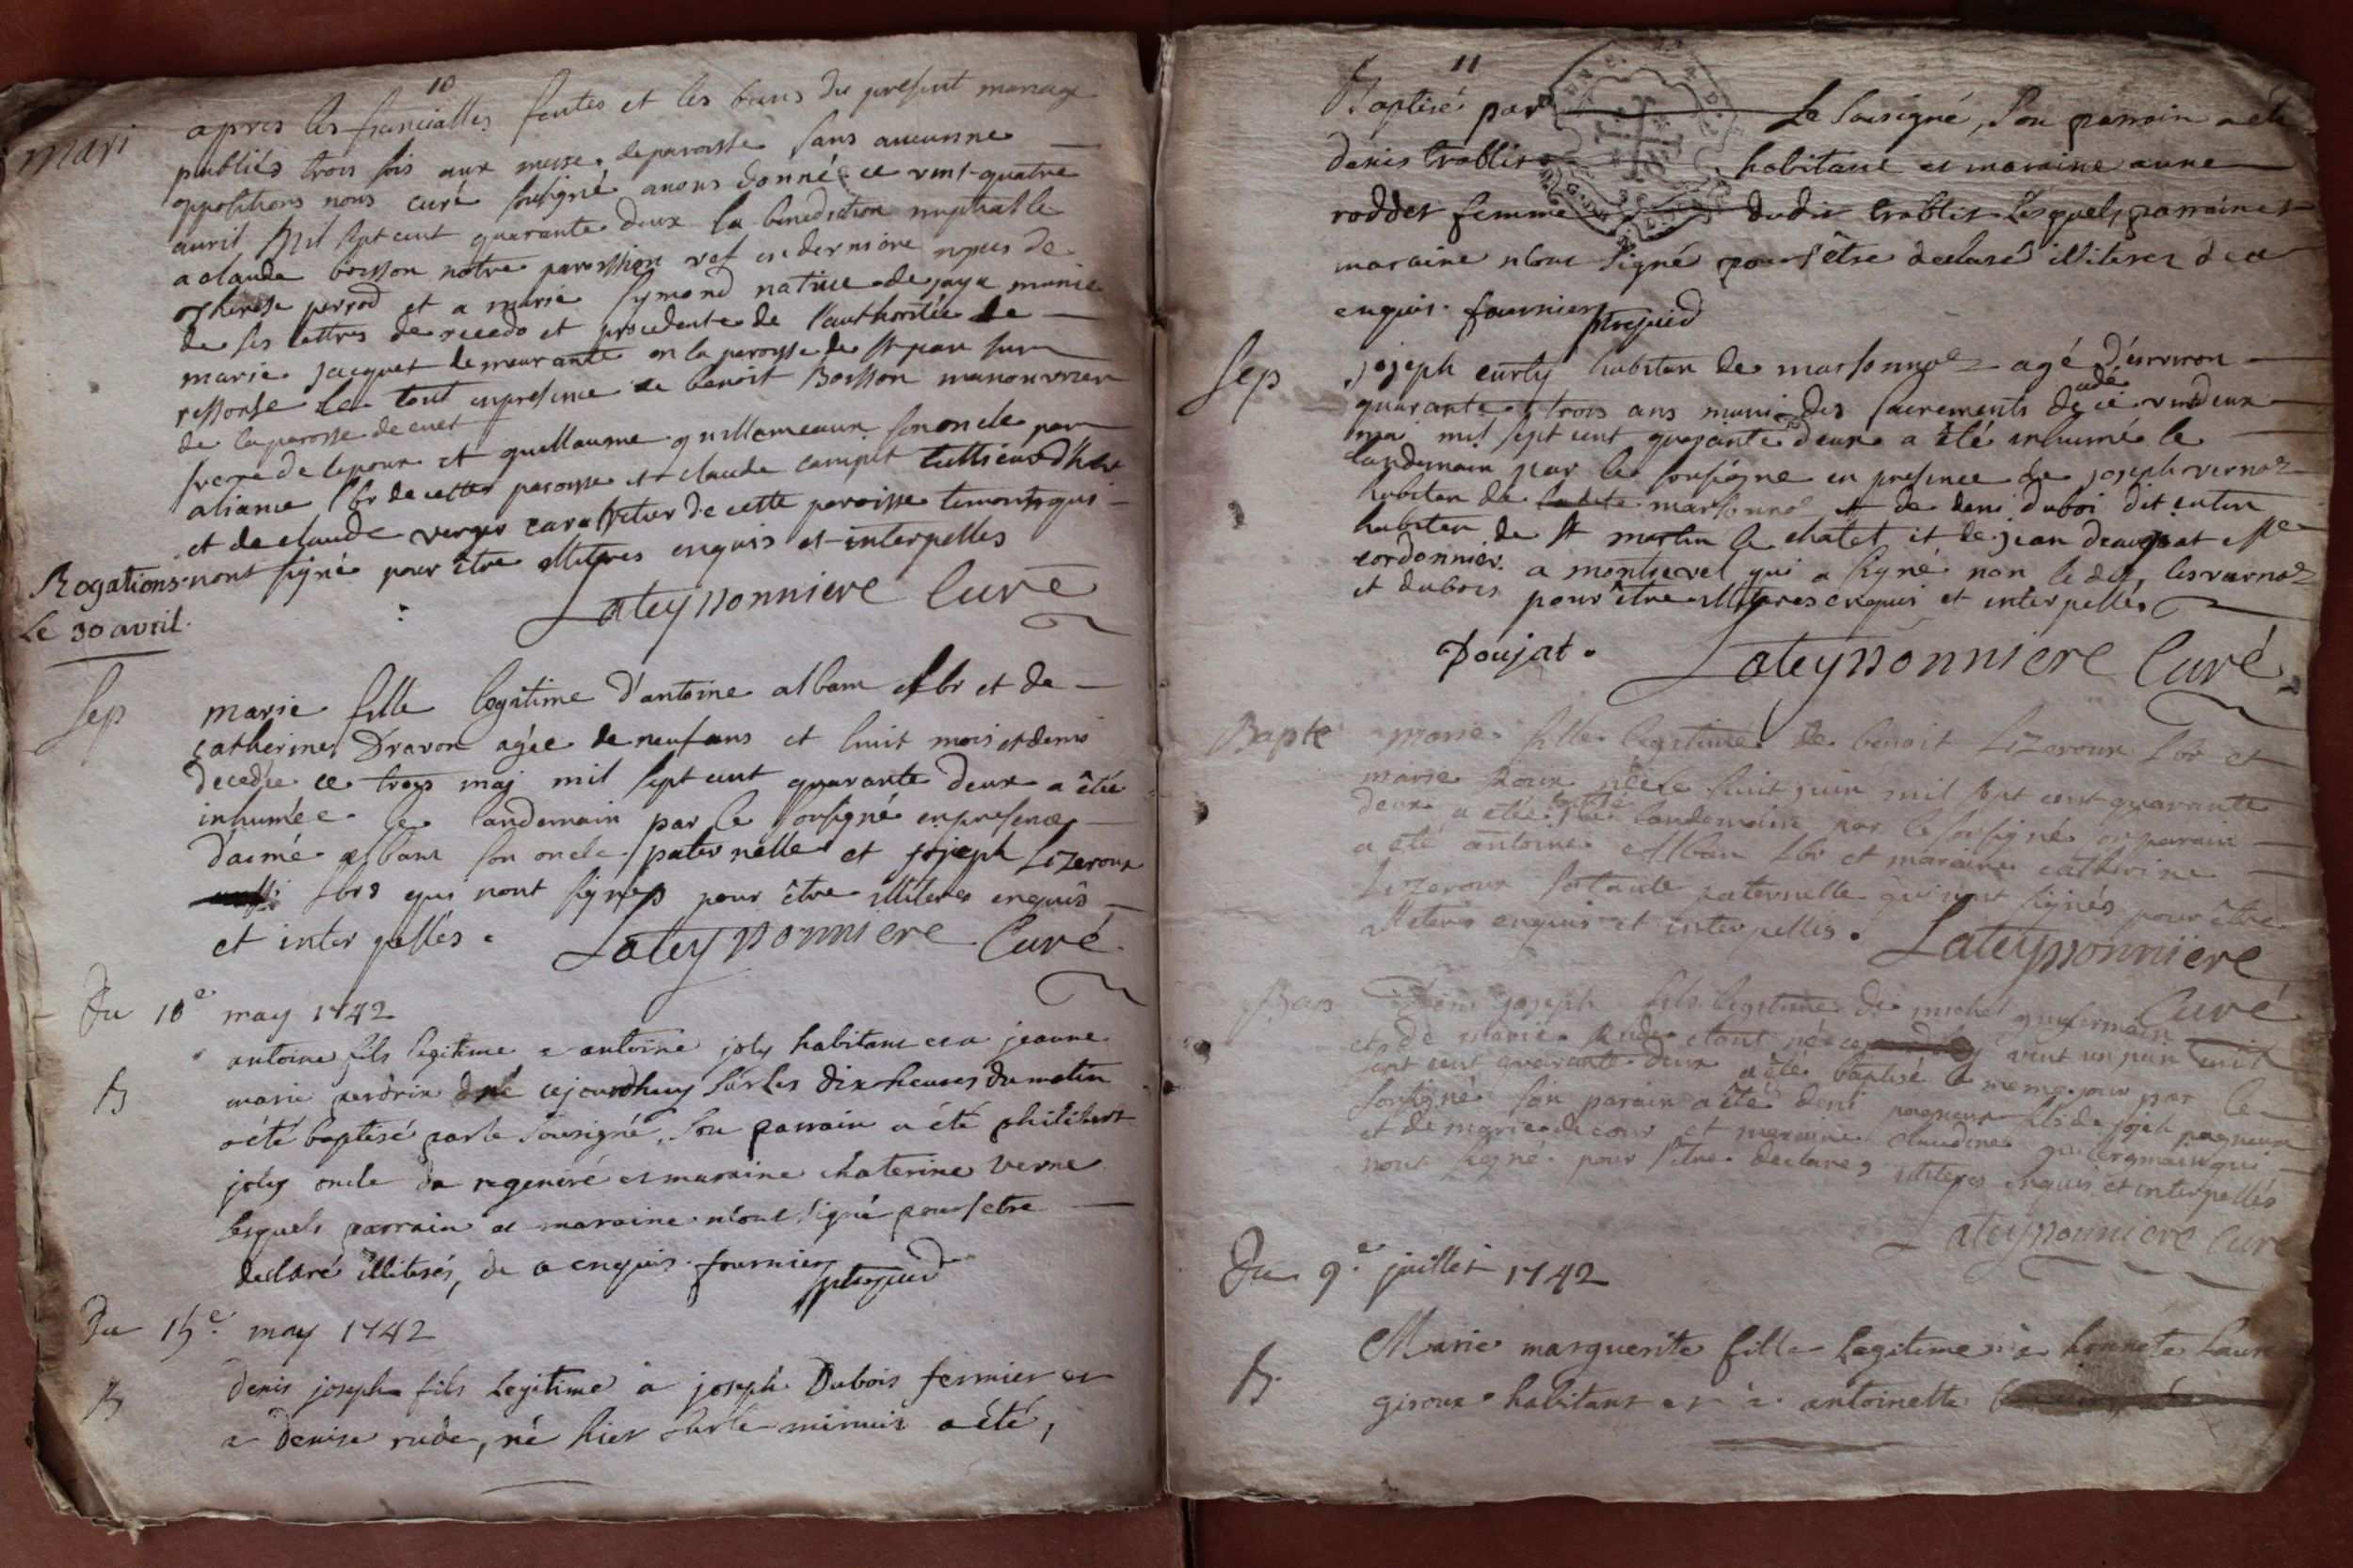 10
mari
apres les fiancialles faites et les bans du present mariage
publiés trois fois aux messe de paroisse sans aucunne
oppositions nous curé soussigné avons donné ce vint-quatre
avril mil sept cent quarante deux la benediction nuptialle
a claude boisson notre paroissien vef en derniere nopces de
therese perrod et a marie symond native de jaya munie
de ses lettres de recedo et procedente de l'authoritée de
marie jacquet demeurante en la paroysse de st jean sur
ressouse le tout en presence de benoit Boisson manouvrier
de la paroisse de cuet
frere de lepoux et guillaume guillemeaux son oncle par
aliance lbr de cette paroisse et claude
et de claude verger de cette paroisse temoins qui
nont signé pour être illiteres enquis et interpelles
Rogations
Le 30 avril.
Lateyssonniere Curé
sep
marie fille legitime d'antoine alban lbr et de
catherine Dravon agée de neuf ans et huit mois et demi
decedée ce trois maj mil sept cent quarante deux a étée
inhumée le landemain par le sousigné en presence
d'aimé alban son oncle paternelle et joseph Lizeroux
lbrs qui nont signés pour être illiteres enquis
et interpellés. Lateyssonniere Curé.
Du 10e may 1742
B
antoine fils legitime a antoine joly habitant et a jeanne
marie perdrix né cejourdhuy sur les dix heures du matin
a été baptisé par le sousigné, son parrain a été philibert
joly oncle du regeneré et maraine chaterine verne
lesquels parrain et maraine n'ont signé pour s'etre
declaré illiterés, de ce enquis. fournier
Du 15e may 1742
B
denis joseph fils legitime à joseph Dubois fermier et
a denise rude, né hier sur le minuit a été,
11
Baptisé par Le sousigné, son parrain a été
denis trablit habitant et maraine anne
roddet femme dudit trablit lesquels parrain et
maraine n'ont signé pour s'être declaré illiteres de ce
enquis. fournier
sep
joseph curty habitan de marsonnaz agé d'environ
quarante trois ans muni des sacrements decedé ce vintdeux
mai mil sept cent quarante deux a été inhumé le
landemain par le sousigné en presence de joseph vernaz
habitan de marsonna et de deni duboi dit
habitan de st martin le chatel et de jean
cordonnier a montrevel qui a signé non le dit, les vernaz
et dubois pour être illiteres enquis et interpellés
Poujat. Lateyssonniere Curé
Bapte
marie fille legitime de benoit Lizeroux lbr et
marie Roux née le huit juin mil sept cent quarante
deux a été btsé le landemain par le sousigné son parain
a été antoine Alban lbr et maraine catherine
Lizeroux sa tante paternelle qui nont signés pour être
illiteres enquis et interpellés. Lateyssonniere
Curé
Bap
Deni joseph fils legitime de michel guillermain
et de marie Rude etant né ce vint un juin mil
sept cent quarante deux a été baptisé le meme jour par le
sousigné son parain a été deni pagneux fils de joseph pagneux
et de marie de cour et maraine claudine guillermain qui
nont signé pour s'etre declarés illiteres enquis et interpellés
Lateyssonniere Curé
Du 9e juillet 1742
B.
Marie marguerite fille legitime à honnete
giroux habitant et à antoinette